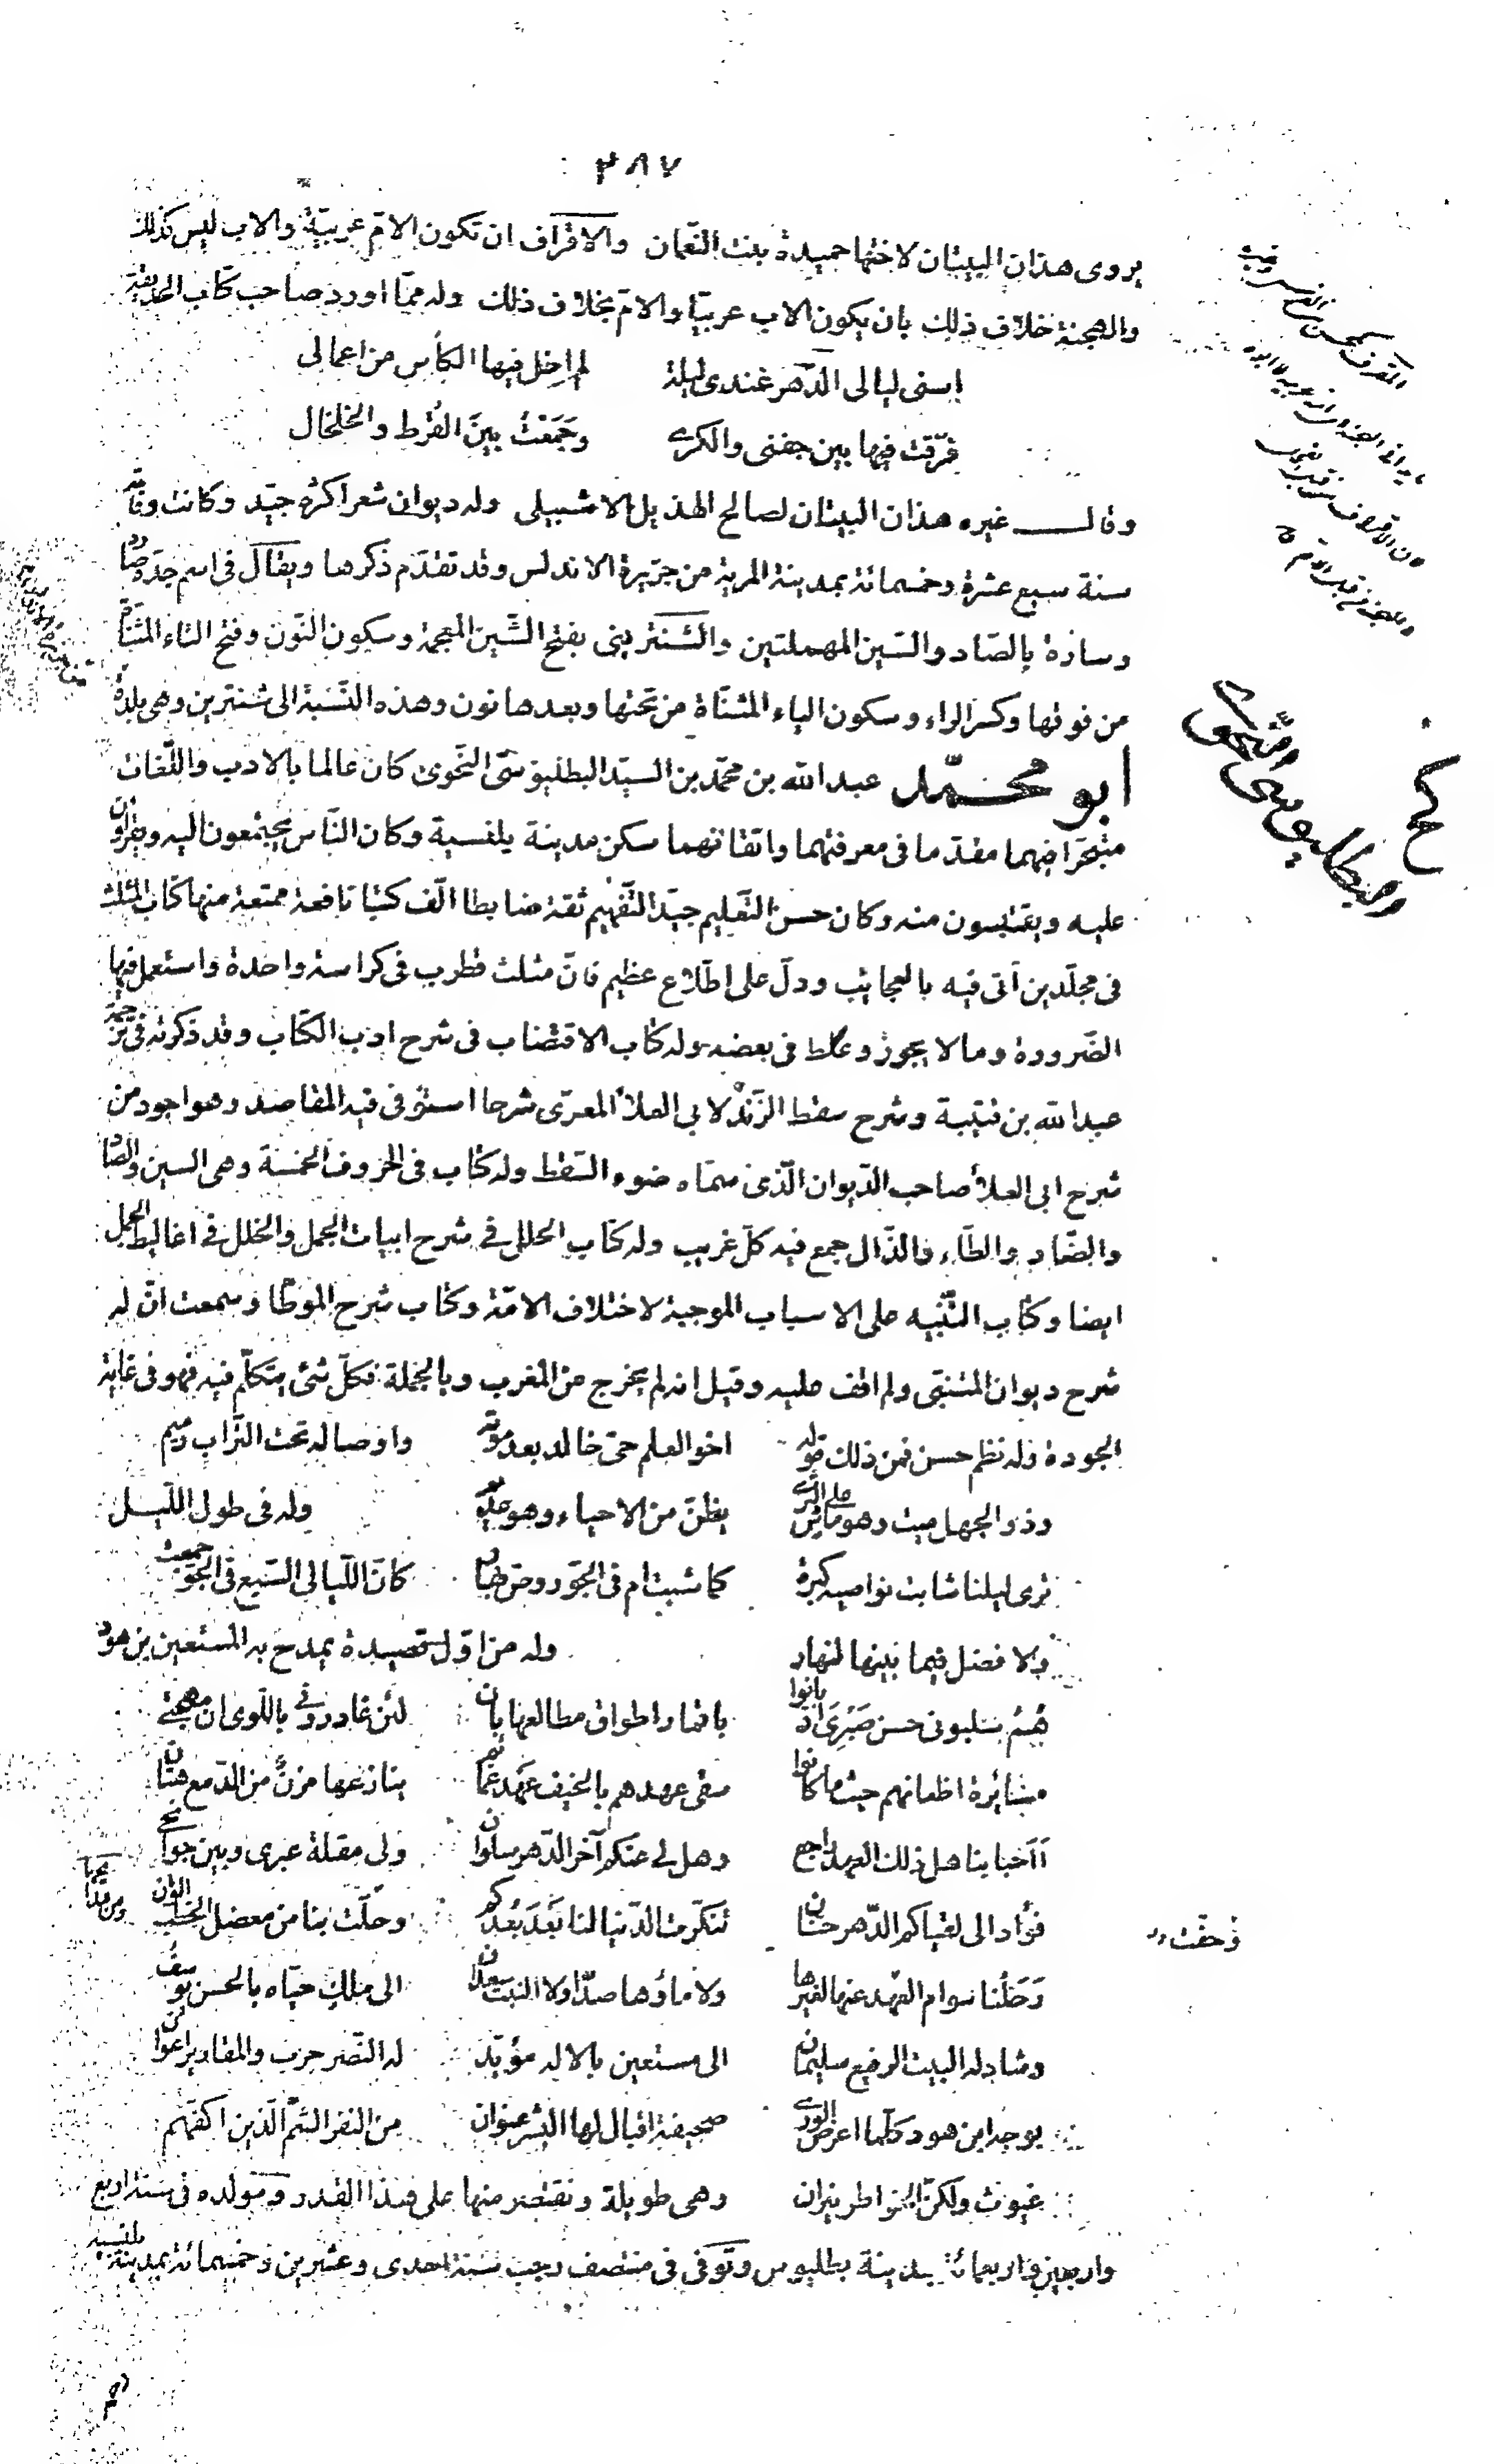 ٣٨٧
يروى هذان البيتان لاختها حميدة بنت النعمان والاقراف ان تكون الام عربية والاب ليس كذلك
والهجنة خلاف ذلك بان يكون الاب عربيا والام بخلاف ذلك وله مما اورد صاحب كتاب الحديقة
اسنى ليالى الدهر عندى ليلة لم اخل فيها الكأس من اعمالى
فرّقت فيها بين جفنى والكرى وجمعت بين القرط والخلخال
وقال غيره هذان البيتان لصالح الهذيل الاشبيلى وله ديوان شعر اكثره جيّد وكانت وفاته
سنة سبع عشرة وخمسمائة بمدينة المرية من جزيرة الاندلس وقد تقدّم ذكرها ويقال فى اسم جدّه صارة
وسارة بالصاد والسين المهملتين والشنترينى بفتح الشين المعجمة وسكون النون وفتح التاء المثناة
من فوقها وكسر الراء وسكون الياء المثناة من تحتها وبعدها نون وهذه النسبة الى شنترين وهى بلدة
ابو محمّد عبد الله بن محمّد بن السيّد البطليوسى النحوى كان عالما بالادب واللّغات
متبحّرا فيهما مقدّما فى معرفتهما واتقانهما سكن مدينة بلنسية وكان الناس يجتمعون اليه ويقراون
عليه ويقتبسون منه وكان حسن التعليم جيّد التفهيم ثقة ضابطا الّف كتبا نافعة ممتعة منها كتاب المثلث
فى مجلّدين اتى فيه بالعجايب ودلّ على اطّلاع عظيم فانّ مثلث قطرب فى كراسة واحدة واستعمل فيها
الضرورة وما لا يجوز وغلط فى بعضه وله كتاب الاقتضاب فى شرح ادب الكتّاب وقد ذكرته فى ترجمة
عبد الله بن قتيبة وشرح سقط الزند لابى العلا المعرّى شرحا استوفى فيه المقاصد وهو اجود من
شرح ابى العلا صاحب الديوان الّذى سمّاه ضوء السقط وله كتاب فى الحروف الخمسة وهى السين والصاد
والضّاد والطاء والذّال جمع فيه كلّ غريب وله كتاب الحلل فى شرح ابيات الجمل والخلل فى اغاليط الجمل
ايضا وكتاب التنبيه على الاسباب الموجبة لاختلاف الامّة وكتاب شرح الموطّا وسمعت انّ له
شرح ديوان المتنبّى ولم اقف عليه وقيل انه لم يخرج من المغرب وبالجملة فكلّ شئ يتكلّم فيه فهو فى غاية
الجودة وله نظم حسن فمن ذلك قوله اخو العلم حىّ خالد بعد موته واوصاله تحت التراب رميم
وذو الجهل ميت وهو ماش على الثرى يظنّ من الاحياء وهو عديم وله فى طول اللّيل
ترى ليلنا شابت نواصيه كبرة كما شبت ام فى الجوّ روض بهار كان اللّيالى السبع فى الجوّ جمعت
ولا فصل فيما بينها لنهار وله من اوّل قصيدة يمدح به المستعين بن هود
هُمُ سلبونى حسن صبرى اذ بانوا باقمار اطواق مطالعها بان لئن غادرونى باللّوى ان مهجتى
مسائرة اظعانهم حيثما كانوا سقى عهدهم بالخيف عهد غمائم ينازعها مزن من الدّمع هتّان
أاحبابنا هل ذلك العهد راجع وهل لى عنكم آخر الدّهر سلوان ولى مقلة عبرى وبين جوانحى
فؤاد الى لقياكم الدّهر حنّان تنكّرت الدّنيا لنا بَعْدَ بُعْدكم وحلّت بنا من معضل الخطب الوان
ومن مدّحها
رحلنا سوام العهد عنها لغيرها ولا ماؤها صدّا ولا النبت سعدان الى ملك حبّاه بالحسن يوسف
وشاد له البيت الرفيع سليمان الى مستعين بالاله مؤيّد له النصر حزب والمقادير اعوان
بوجه ابن هود كلّما اعرض الورى صحيفة اقبال لها البشر عنوان من النفر الشمّ الّذين اكفّهم
غيوث ولكنّ الخواطر نيران وهى طويلة ونقتصر منها على هذا القدر ومولده فى سنة اربع
واربعين واربعمائة بمدينة بطليوس وتوفى فى منتصف رجب سنة احدى وعشرين وخمسمائة بمدينة بلنسية
البطليوسى النحوى